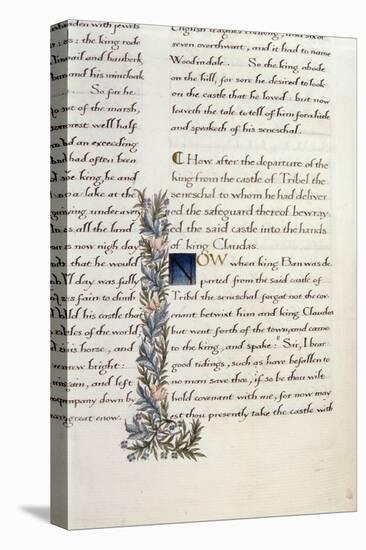 harden with jewels
es: the king rode
limail and hauberk
ham and his raincloak
So far he
out of the marsh,
somerset well half
had an exceeding
had often been
he king, he and
o a lake at the
gaining, under a ven
es. all the land
was now nigh day
that he would
ll day was fully
as fain to climb
told his castle that
castles of the world
his horse, and
new bright:
ungain, and left
company down by
angreat enow.
English leagues endlong, and six or
seven overthwart, and it had to name
Woodindale. So the king abode
on the hill, for sore he desired to look
on the castle that he loved: but now
leaveth the tale to tell of him for a little
and speaketh of his seneschal.
C How after the departure of the
king from the castle of Tribel the
seneschal to whom he had deliver
ed the safeguard thereof bewray
ed the said castle into the hands
of king Claudas.
NOW when king Ban was de
parted from the said castle of
Tribel the seneschal forgat not the cov
enant betwixt him and king Claudas
but went forth of the town and came
to the king, and spake: "Sir, I bear
good tidings, such as have befallen to
no man save thee, if so be thou wilt
hold covenant with me, for now may
est thou presently take the castle with